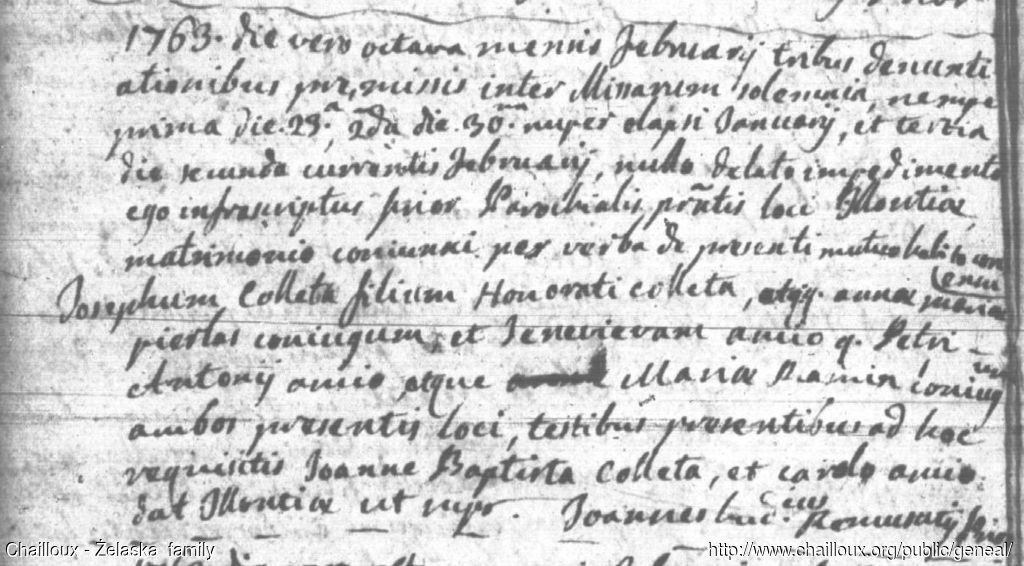 1763. die vero octava mensis Februarij tribus denunti
ationibus premissis inter Missarum solemnia, nempe
prima die 23.ª, 2da die 30.ma nuper elapsi Januarij, et tertia
die secunda currentis Februarij, nullo delato impedimento
ego infrascriptus prior Parochialis pñtis loci Illontiæ
matrimonio coniunxi per verba de presenti mutuo habito con
sensu
Josephum Colleta filium Honorati Colleta, atqz. annæ mariæ
pierlas coniugum, et Jenevievam amio q. Petri
Antonij amio, atque Mariæ Ramin coniug
um
ambos presentis loci, testibus presentibus ad hoc
requisitis Joanne Baptista Colleta, et carolo amio.
dat Illontiæ ut supr. Joannes Remusatij Prior
Chailloux - Żelaska family
http://www.chailloux.org/public/geneal/